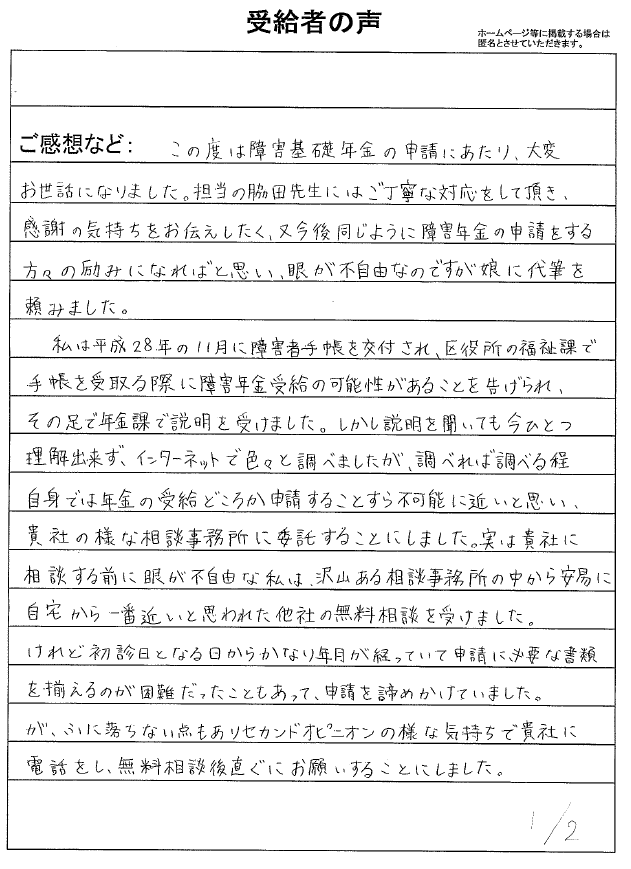 受給者の声
ホームページ等に掲載する場合は
匿名とさせていただきます。
ご感想など： この度は障害基礎年金の申請にあたり、大変
お世話になりました。担当の脇田先生にはご丁寧な対応をして頂き、
感謝の気持ちをお伝えしたく、又今後同じように障害年金の申請をする
方々の励みになればと思い、眼が不自由なのですが娘に代筆を
頼みました。
私は平成28年の11月に障害者手帳を交付され、区役所の福祉課で
手帳を受取る際に障害年金受給の可能性があることを告げられ、
その足で年金課で説明を受けました。しかし説明を聞いても今ひとつ
理解出来ず、インターネットで色々と調べましたが、調べれば調べる程
自身では年金の受給どころか申請することすら不可能に近いと思い、
貴社の様な相談事務所に委託することにしました。実は貴社に
相談する前に眼が不自由な私は、沢山ある相談事務所の中から安易に
自宅から一番近いと思われた他社の無料相談を受けました。
けれど初診日となる日からかなり年月が経っていて申請に必要な書類
を揃えるのが困難だったこともあって、申請を諦めかけていました。
が、ふに落ちない点もありセカンドオピニオンの様な気持ちで貴社に
電話をし、無料相談後直ぐにお願いすることにしました。
1/2